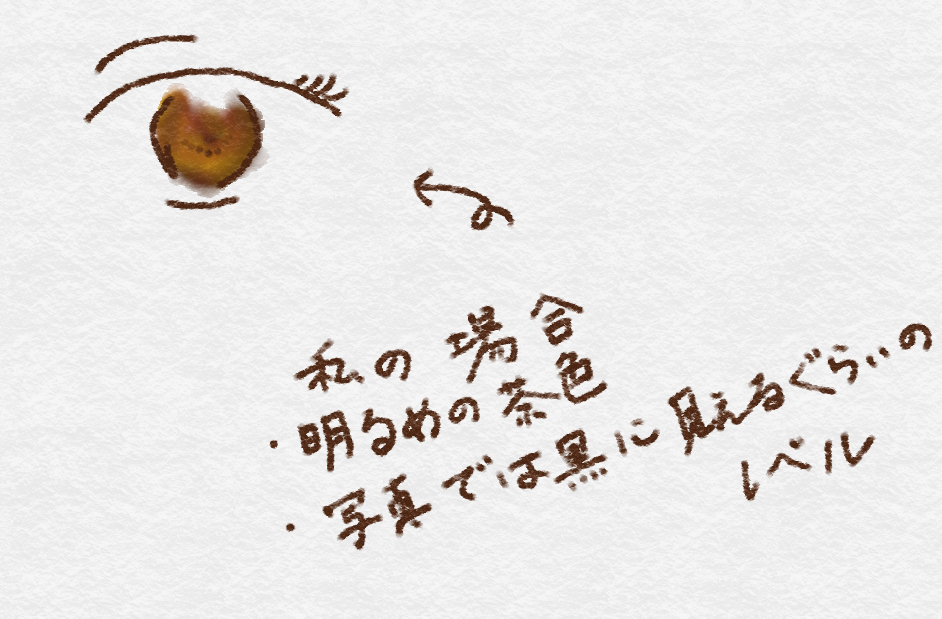 私の場合
・明るめの茶色
・写真では黒に見えるぐらいの
レベル